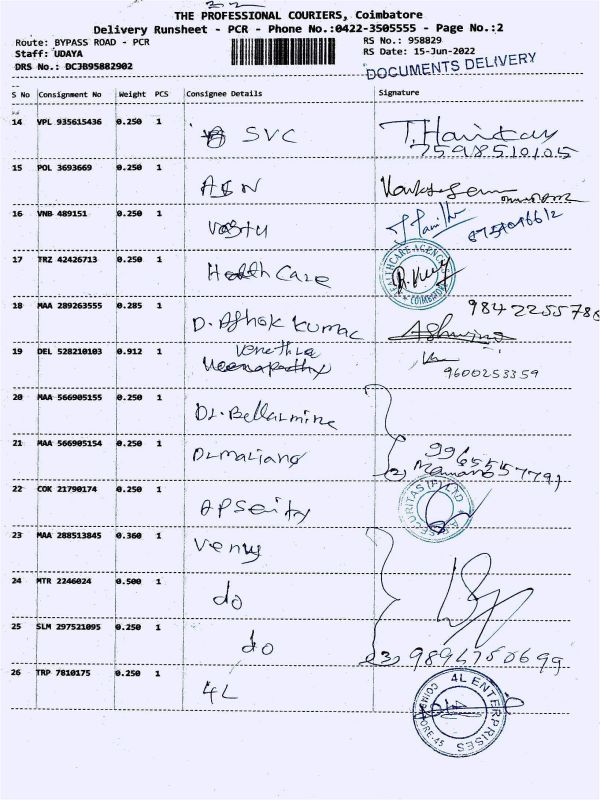 THE PROFESSIONAL COURIERS, Coimbatore
Delivery Runsheet - PCR - Phone No.:0422-3505555 - Page No.:2
Route: BYPASS ROAD - PCR
RS No.: 958829
Staff: UDAYA
RS Date: 15-Jun-2022
DRS No.: DCJB95882902
DOCUMENTS DELIVERY
S No Consignment No Weight PCS Consignee Details Signature
14 VPL 935615436 0.250 1 SVC
7598510105
15 POL 3693669 0.250 1
16 VNB 489151 0.250 1
17 TRZ 42426713 0.250 1 Health Care
HEALTHCARE AGENCY
COIMBATORE
18 MAA 289263555 0.285 1 D. Ashok Kumar Ashwin
9842255786
19 DEL 528210103 0.912 1
9600253359
20 MAA 566905155 0.250 1 Dr. Bellarmine
21 MAA 566905154 0.250 1 Dr Mariano
22 COK 21790174 0.250 1
23 MAA 288513845 0.360 1 Venus
24 MTR 2246024 0.500 1 do
25 SLM 297521095 0.250 1 do
(3) 9894750699
26 TRP 7810175 1 0.250 4L
4L ENTERPRISES
COIMBATORE-45